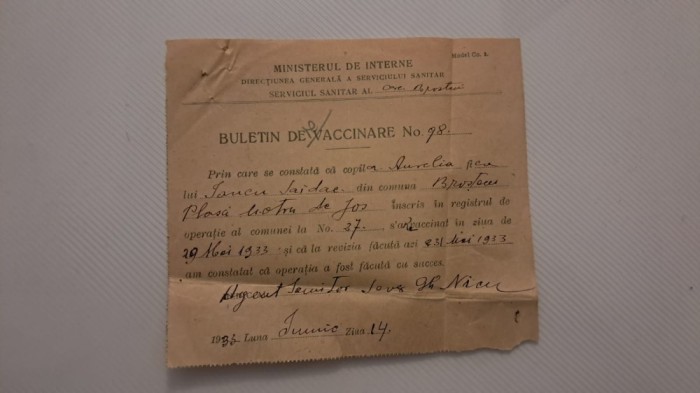 Model Co. 4.
MINISTERUL DE INTERNE
DIRECȚIUNEA GENERALĂ A SERVICIULUI SANITAR
SERVICIUL SANITAR AL
BULETIN DE VACCINARE No. 98.
Prin care se constată că copil Aurelia
lui Iancu din comuna
Plasa de Jos înscris în registrul de
operație al comunei la No. 27. s'a vaccinat în ziua de
29 Mai 1933 și că la revizia făcută azi 31 Mai 1933
am constatat că operația a fost făcută cu succes.
Agent Gh. Nicu
193 Luna Iunie Ziua 14.